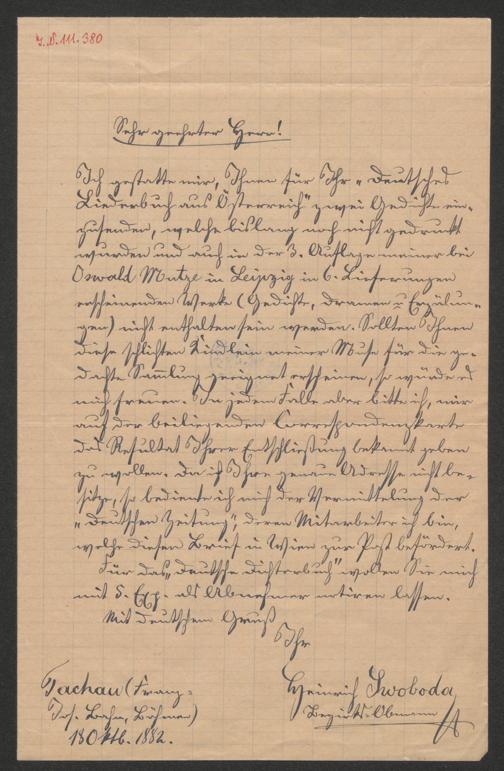 I. N. 111.380
Sehr geehrter Herr!
Ich gestatte mir, Ihnen für Ihr „Deutsches
Liederbuch aus Österreich" zwei Gedichte ein-
zusenden, welche bislang noch nicht gedruckt
wurden und auch in der 3. Auflage meiner bei
Oswald Mutze in Leipzig in 6. Lieferungen
erscheinenden Werke (Gedichte, Dramen u Erzälun-
gen) nicht enthalten sein werden. Sollten Ihnen
diese schlichten Kindlein meiner Muse für die ge-
dachte Samlung geeignet erscheinen, so würde es
mich freuen. In jedem Falle aber bitte ich, mir
auf der beiliegenden Correspondenzkarte
das Resultat Ihrer Entschließung bekannt geben
zu wollen. Da ich Ihre genaue Adresse nicht be-
sitze, so bediente ich mich der Vermittelung der
„Deutschen Zeitung", deren Mitarbeiter ich bin,
welche diesen Brief in Wien zur Post befördert.
Für das „Deutsche Dichterbuch" wollen Sie mich
mit 5. Exp. als Abnehmer notiren lassen.
Mit deutschem Gruß
Ihr
Heinrich Swoboda
Bezirks-Obmann
Tachau (Franz-
Jos. Bahn, Böhmen)
18 Oktb. 1882.